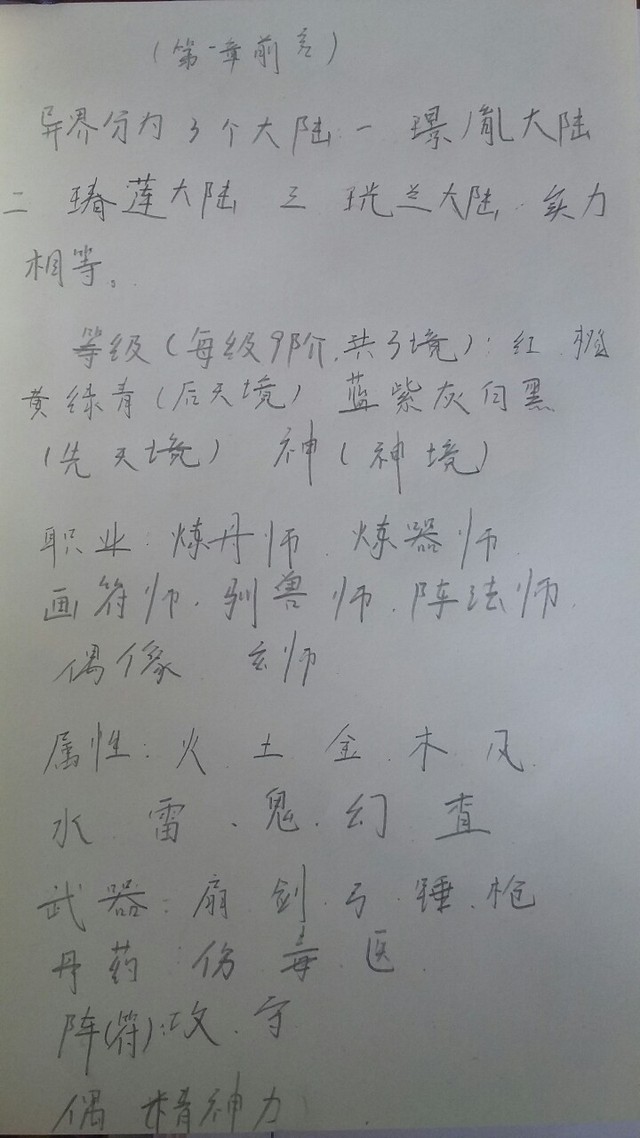 （第一章前言）
异界分为3个大陆一 璟胤大陆
二 瑃莲大陆 三 珖兰大陆.实力
相等。
等级（每级9阶,共3境）：红 橙
黄绿青（后天境） 蓝紫灰白黑
（先天境） 神（神境）
职业：炼丹师.炼器师
画符师.驯兽师.阵法师.
偶像 玄师
属性：火 土 金 木 风
水 雷.鬼.幻
武器：扇 剑 弓 锤.枪
丹药：伤 毒.医
阵(符)：攻.守
偶 精神力